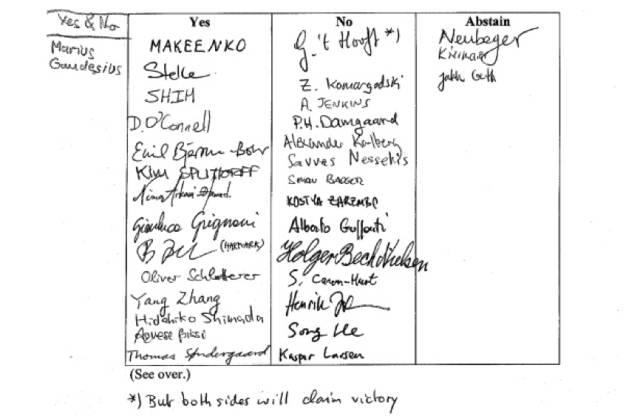 Yes & No
Marius
Gaudesius
Yes
MAKEENKO
Stelle
SHIH
D. O'Connell
Emil Bjerrum-Bohr
KIM SPLITTORFF
Nima Arkani-Hamed
Gianluca Grignani
(HARMARK)
Oliver Schlotterer
Yang Zhang
Hidehiko Shimada
Agnese Bissi
Thomas Søndergaard
(See over.)
No
G. 't Hooft *)
Z. Komargodski
A. JENKINS
P.H. Damgaard
Alexander Karlberg
Savvas Nesseris
SIMON BADGER
KOSTYA ZAREMBO
Alberto Guffanti
Holger Bech Nielsen
S. Caron-Huot
Henrik
Song He
Kasper Larsen
Abstain
Neuberger
*) But both sides will claim victory